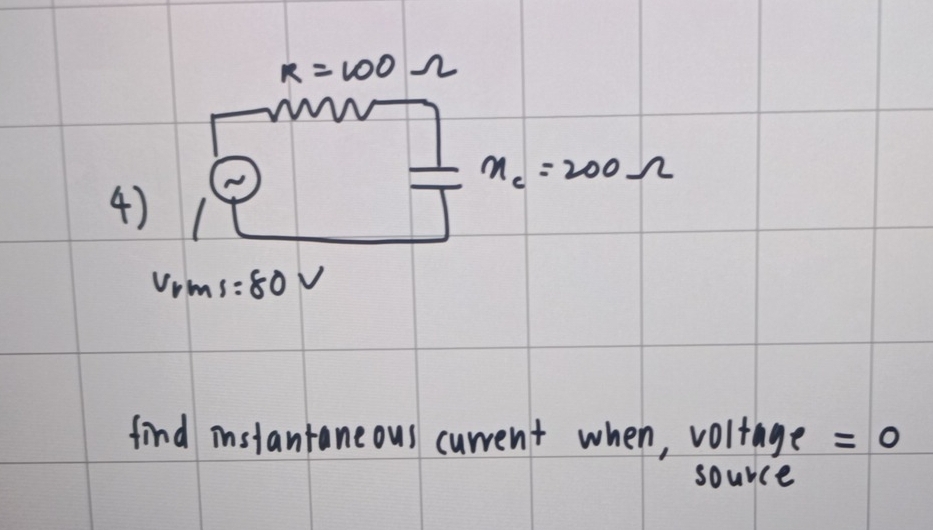 R = 100 Ω
4)
~
x_c = 200 Ω
Vrms = 80 V
find instantaneous current when, voltage = 0
source